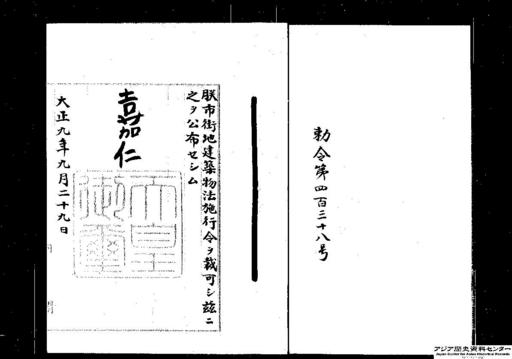 勅令第四百三十八号
朕市街地建築物法施行令ヲ裁可シ茲ニ
之ヲ公布セシム
嘉仁
天皇御璽
大正九年九月二十九日
アジア歴史資料センター
Japan Center for Asian Historical Records